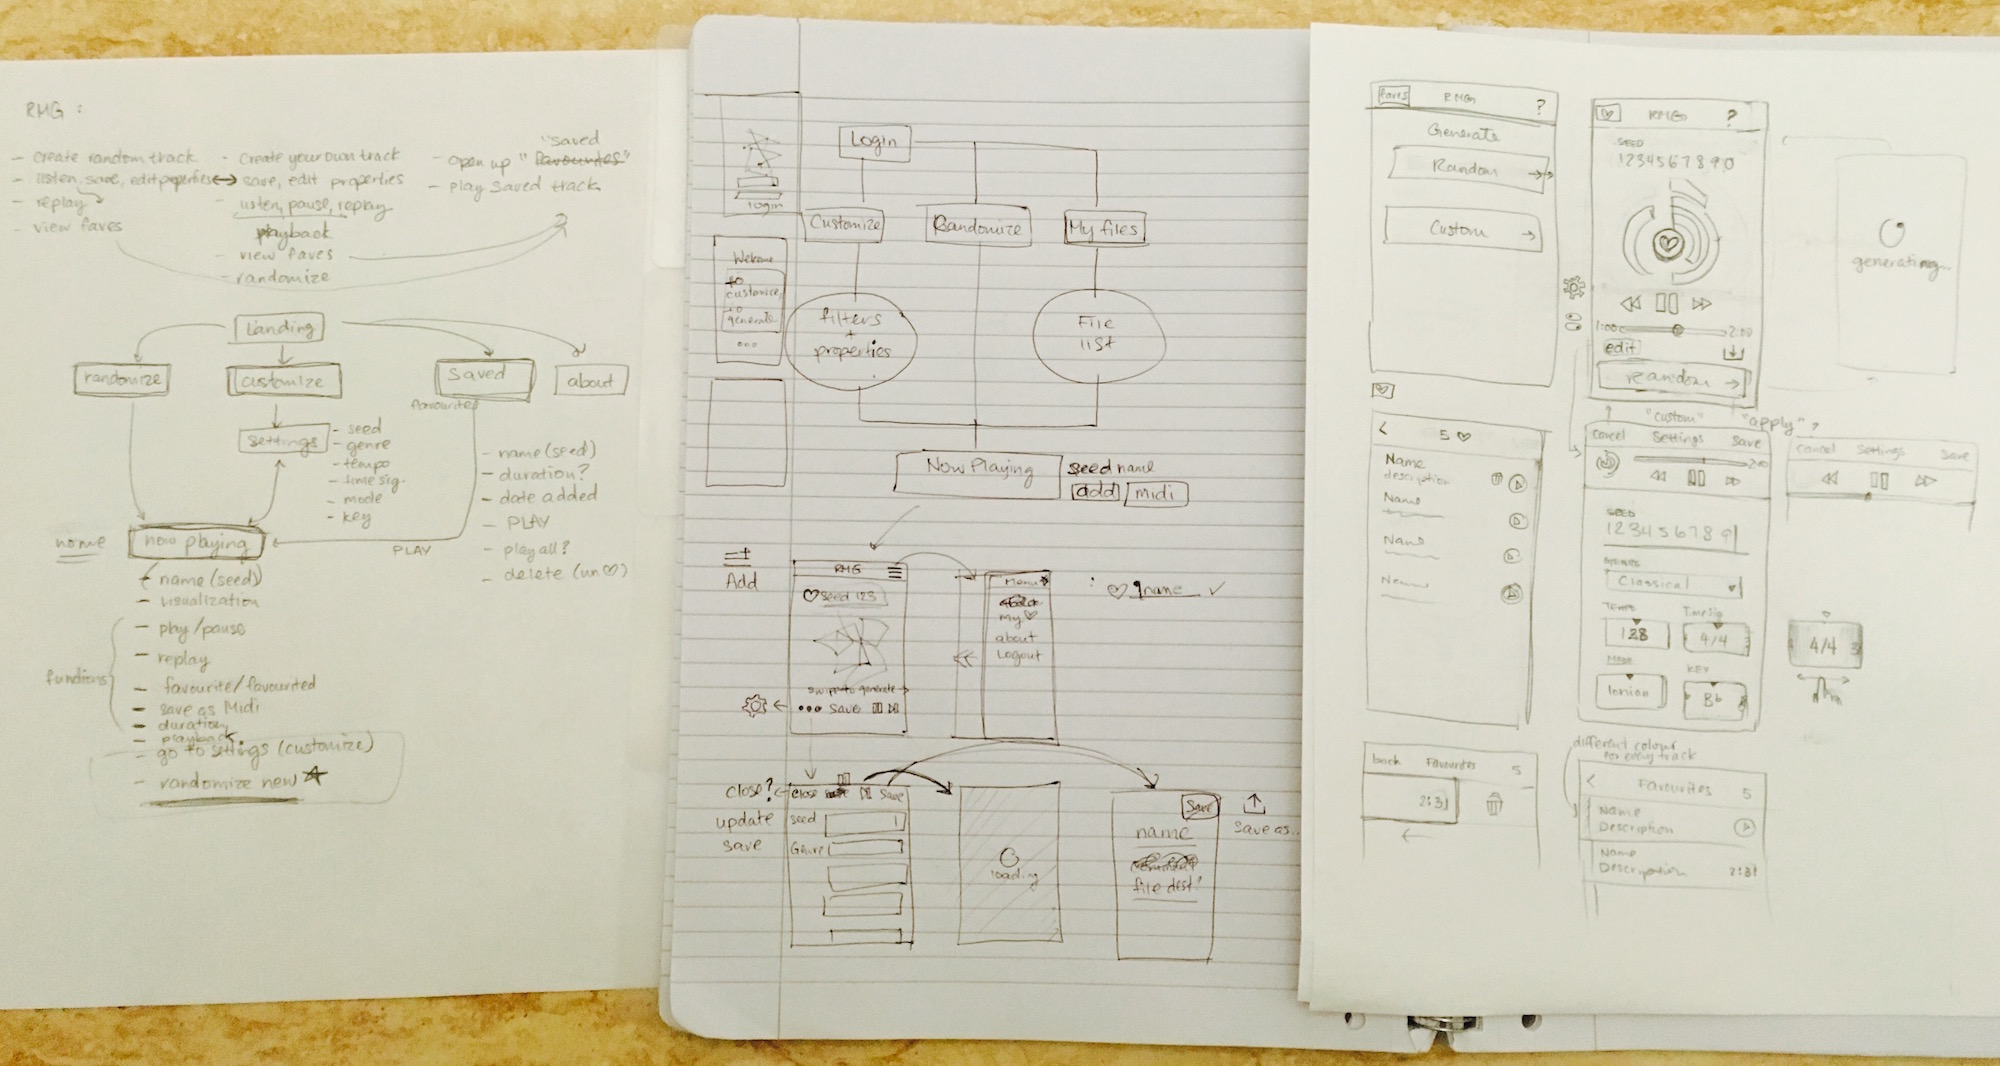 RMG :
- create random track
- listen, save, edit properties
- replay
- view faves
- Create your own track
save, edit properties
- listen, pause, replay
playback
- view faves
- randomize
"saved
- open up "favourites"
- play saved track
Landing
randomize
customize
Saved
about
favourited
settings
- seed
- genre
- tempo
- time sig.
- mode
- key
- name (seed)
- duration?
- date added
- PLAY
- play all?
- delete (un♡)
home
now playing
PLAY
- name (seed)
- visualization
- play/pause
- replay
functions
- favourite/favourited
- save as Midi
- duration,
playback
- go to settings (customize)
- randomize new ★
Login
login
Customize
Randomize
My files
Welcome
to
customize,
to
generate
...
filters
+
properties
File
list
Now Playing
seed name
add
midi
Add
RMG
♡ seed 123
swipe to generate →
... save
Menu
my ♡
about
Logout
♡ name ✓
close?
update
save
close
save
seed
Genre
loading
Save
name
file dest?
Save as..
faves
RMG
?
Generate
Random →
Custom →
RMG
?
SEED
1234567890
1:00
2:00
edit
Random →
generating...
< 5 ♡
Name
description
Name
Name
Name
"custom"
"apply" ?
Cancel Settings Save
2:00
SEED
123456789
GENRE
Classical
TEMPO
Time Sig
128
4/4
MODE
KEY
Ionian
Bb
Cancel Settings Save
4/4
back Favourites 5
2:31
different colour
for every track
< Favourites 5
Name
Description
Name
Description 2:31